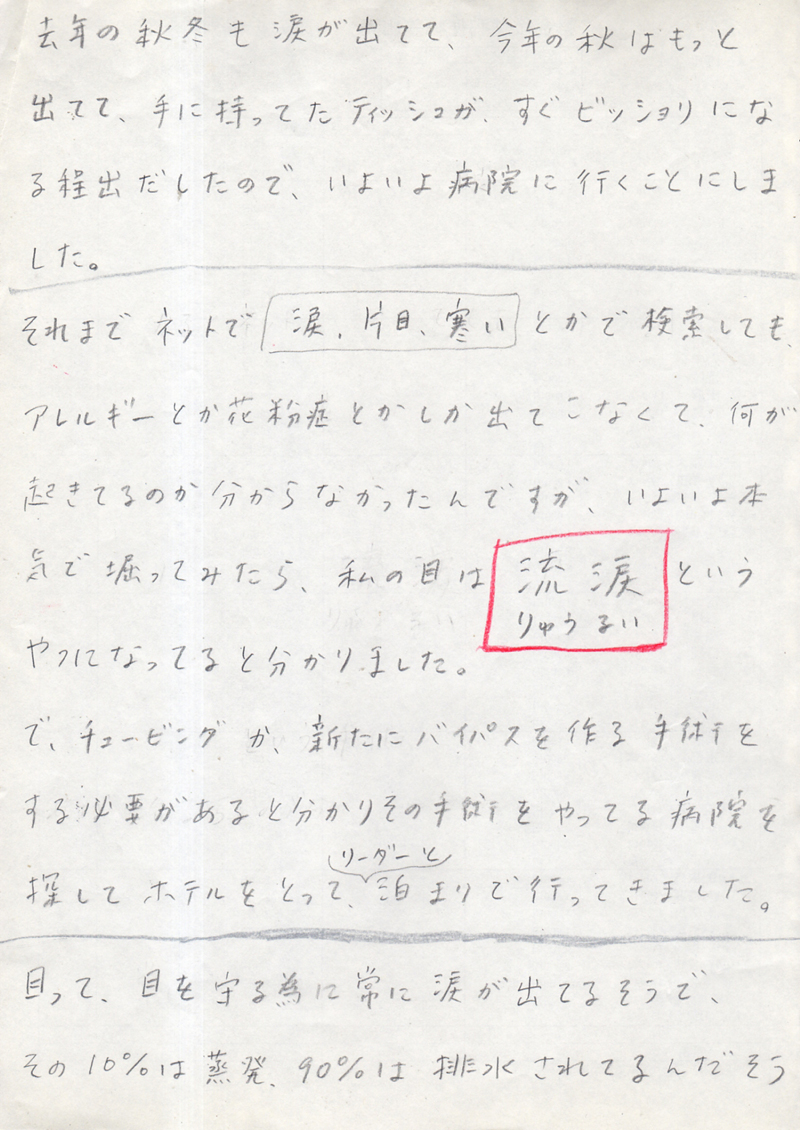 去年の秋冬も涙が出てて、今年の秋はもっと
出てて、手に持ってたティッシュが、すぐビッショリにな
る程出だしたので、いよいよ病院に行くことにしま
した。
それまでネットで 涙、片目、寒い とかで検索しても、
アレルギーとか花粉症とかしか出てこなくて、何が
起きてるのか分からなかったんですが、いよいよ本
気で堀ってみたら、私の目は 流涙 という
りゅうるい
やつになってると分かりました。
で、チュービングか、新たにバイパスを作る手術を
する必要があると分かりその手術をやってる病院を
リーダーと
探してホテルをとって、泊まりで行ってきました。
目って、目を守る為に常に涙が出てるそうで、
その10%は蒸発、90%は排水されてるんだそう